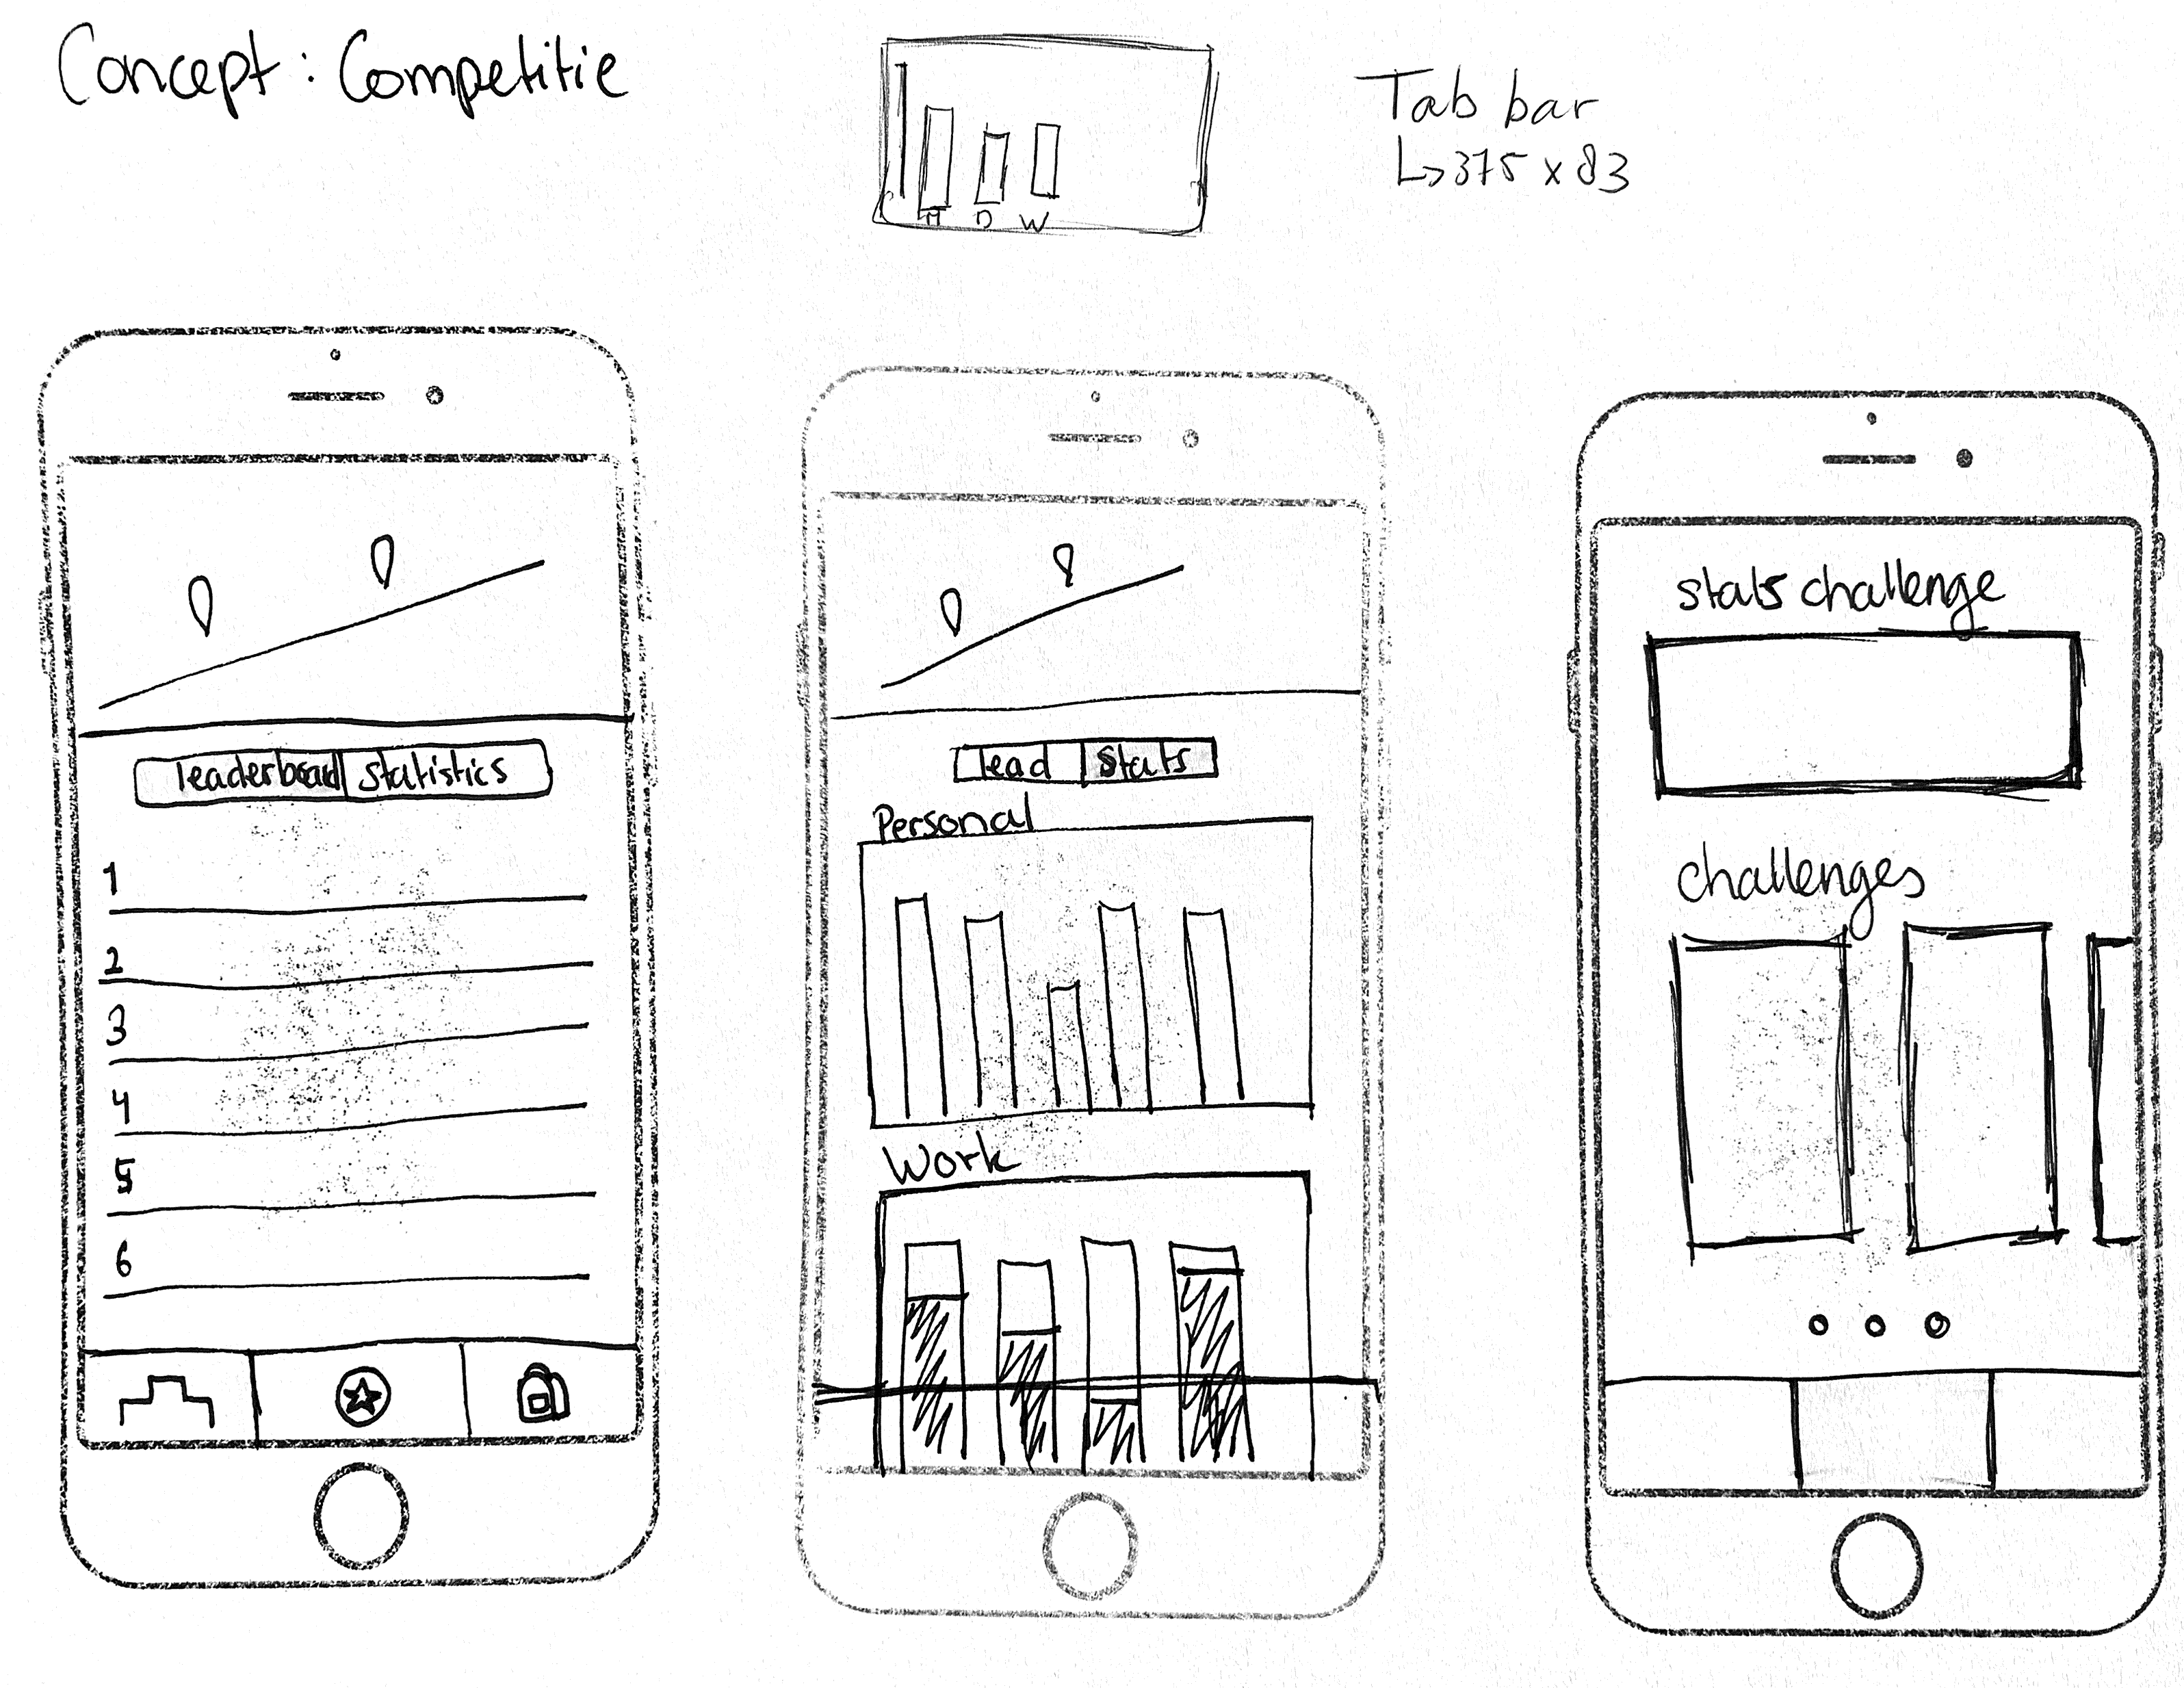 Concept: Competitie
H D W
Tab bar
↳ 375 x 83
leaderboard statistics
1
2
3
4
5
6
lead Stats
Personal
Work
stats challenge
challenges